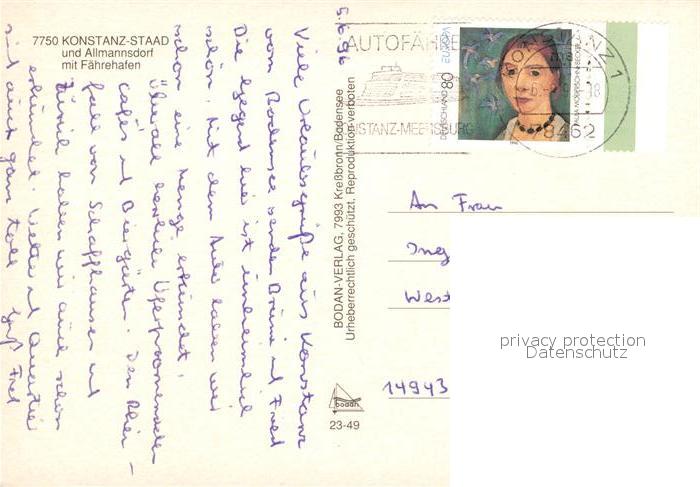 7750 KONSTANZ-STAAD
und Allmannsdorf
mit Fährehafen
5.6.96
Viele Urlaubsgrüße aus Konstanz
vom Bodensee senden Bruni und Fred
Die Gegend hier ist unheimlich
schön. Mit dem Auto haben wir
schon eine Menge erkundet.
Überall herrliche Uferpromenaden
Cafés und Biergärten. Den Rhein-
fall von Schaffhausen und
Zürich haben wir auch schon
erkundet. Wetter und Quartier
sind auch ganz toll. Gruß Fred
BODAN-VERLAG, 7993 Kreßbronn/Bodensee
Urheberrechtlich geschützt. Reproduktion verboten
bodan
23-49
AUTOFÄHRE
KONSTANZ-MEERSBURG
EUROPA
DEUTSCHLAND 80
PAULA MODERSOHN-BECKER
KONSTANZ 1
8462
An Frau
Ing
West
14943
privacy protection
Datenschutz